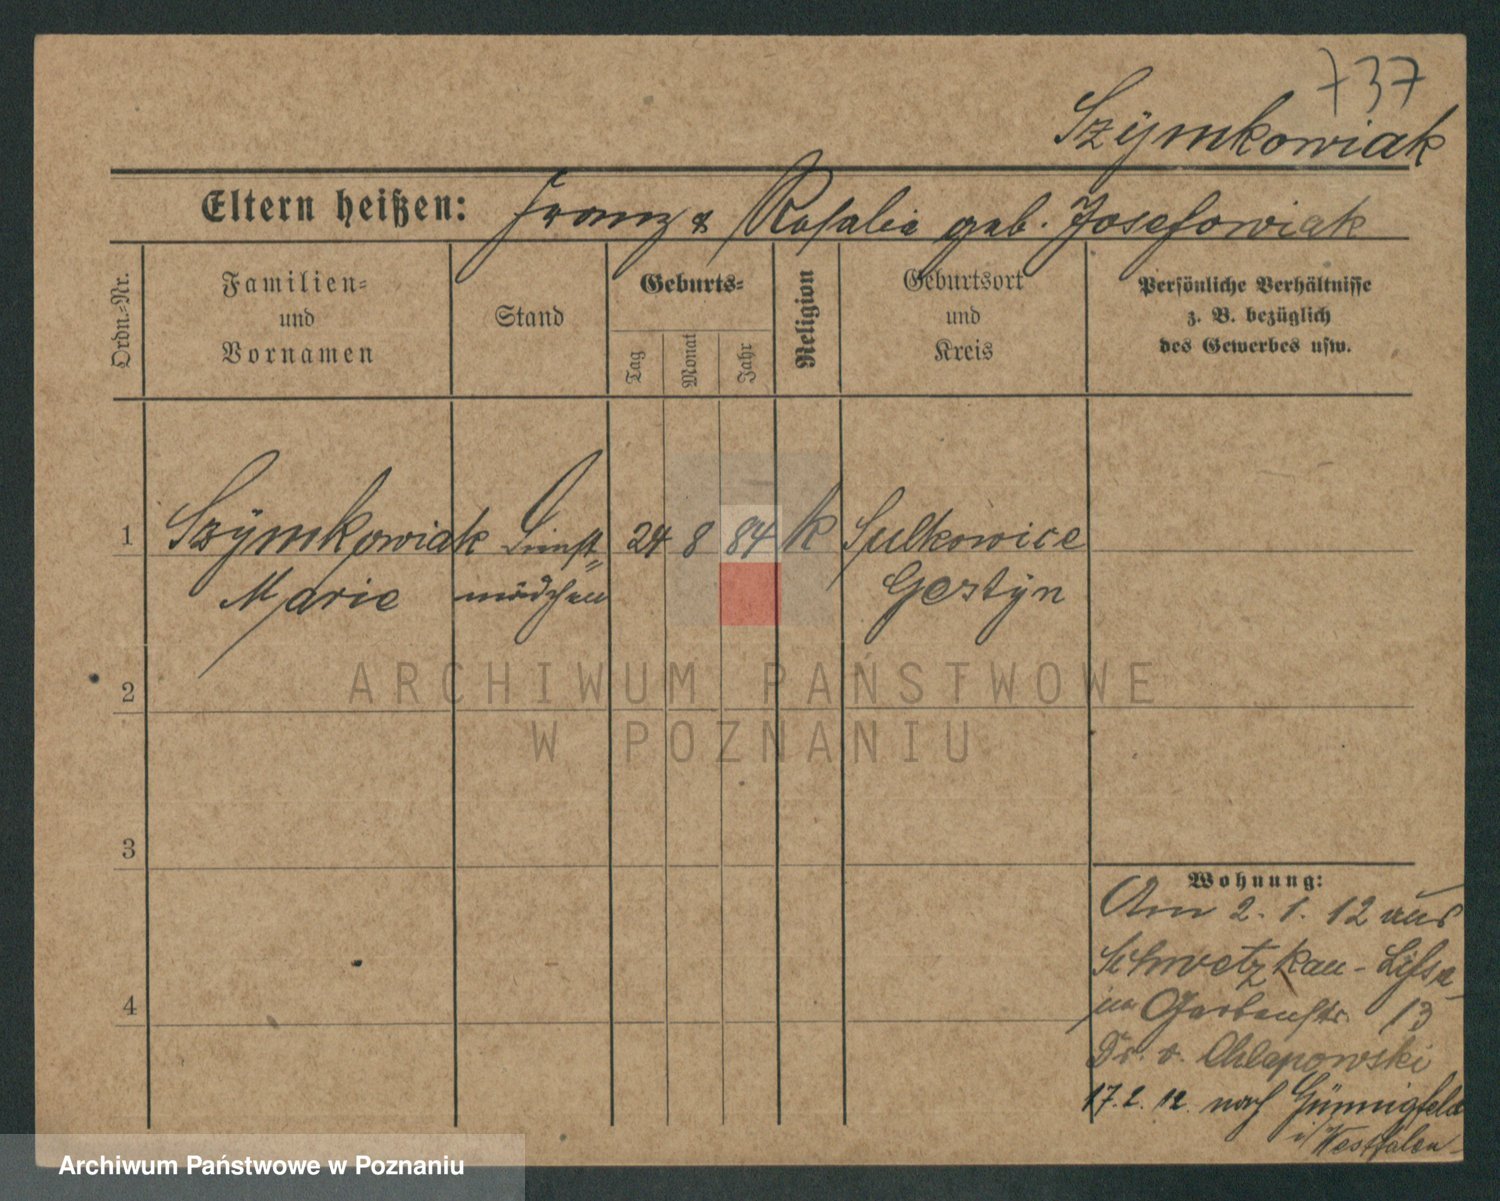 737
Szÿmkowiak
Eltern heißen: Franz & Rosalie geb. Josefowiak
Ordn.-Nr.
Familien-
und
Vornamen
Stand
Geburts-
Tag
Monat
Jahr
Religion
Geburtsort
und
Kreis
Persönliche Verhältnisse
z. B. bezüglich
des Gewerbes usw.
1 Szÿmkowiak Dienst= 24 8 84 k Sulkowice
Marie mädchen Gostÿn
ARCHIWUM PAŃSTWOWE
W POZNANIU
2
3
4
Wohnung:
Am 2. 1. 12 aus
Schwetzkau - Lissa
in Gartenstr. 13
Dr. v. Chlapowski
17.2.12. nach Günnigfeld
i/Westfalen
Archiwum Państwowe w Poznaniu